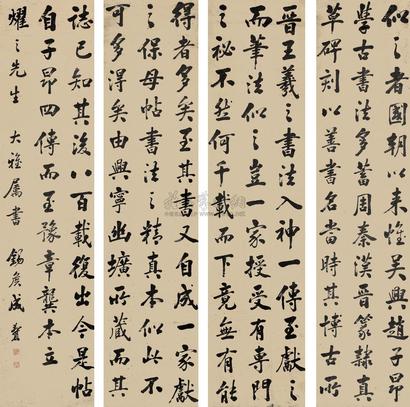 似之者國朝以来惟吳興趙子昂
學古書法多蓄周秦漢晉篆隸真
草碑刻以善書名當時其博古所
晉王羲之書法入神一傳至獻之
而筆法似之豈一家授受有專門
之秘不然何千載而下竟無有能
得者多矣至其書又自成一家獻
之保母帖書法之精真本似此不
可多得矣由興寧幽壙所藏而其
誌已知其後八百載復出今是帖
自子昂四傳而至豫章龔本立
耀之先生 大雅屬書